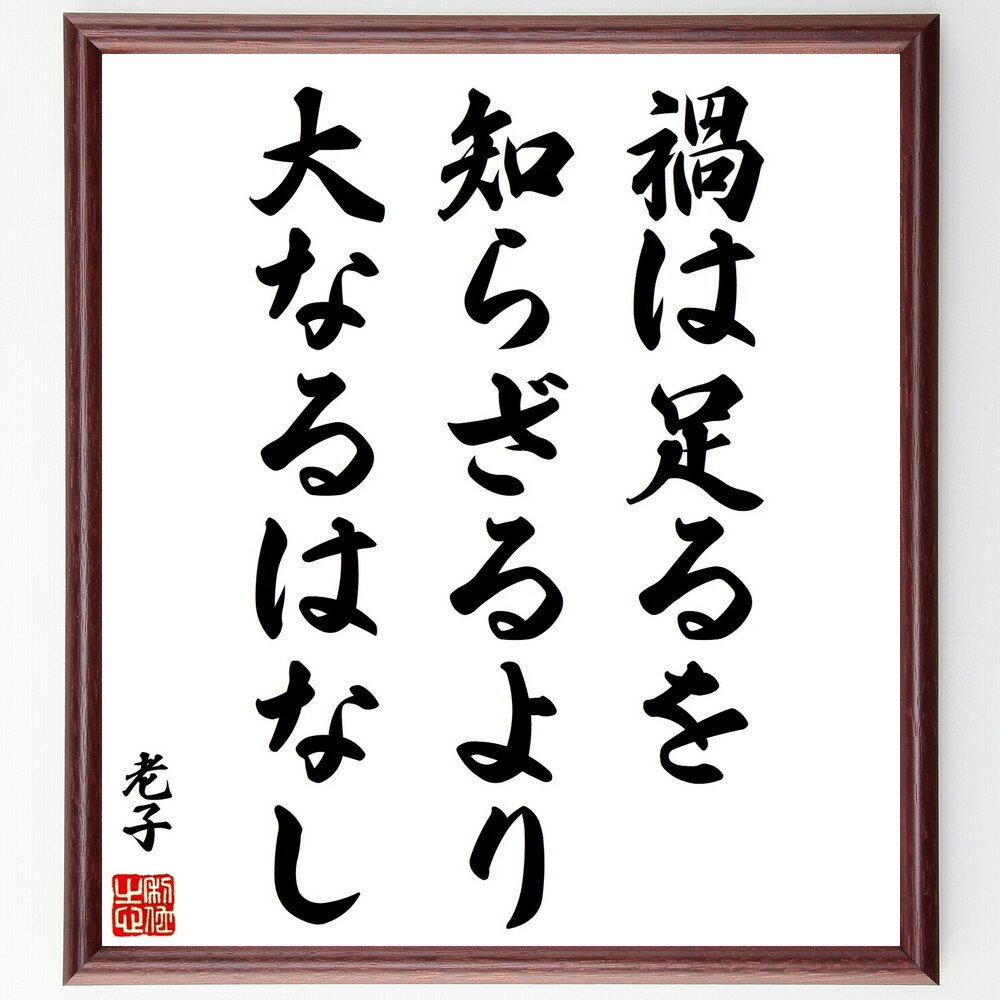 禍は足るを
知らざるより
大なるはなし
老子